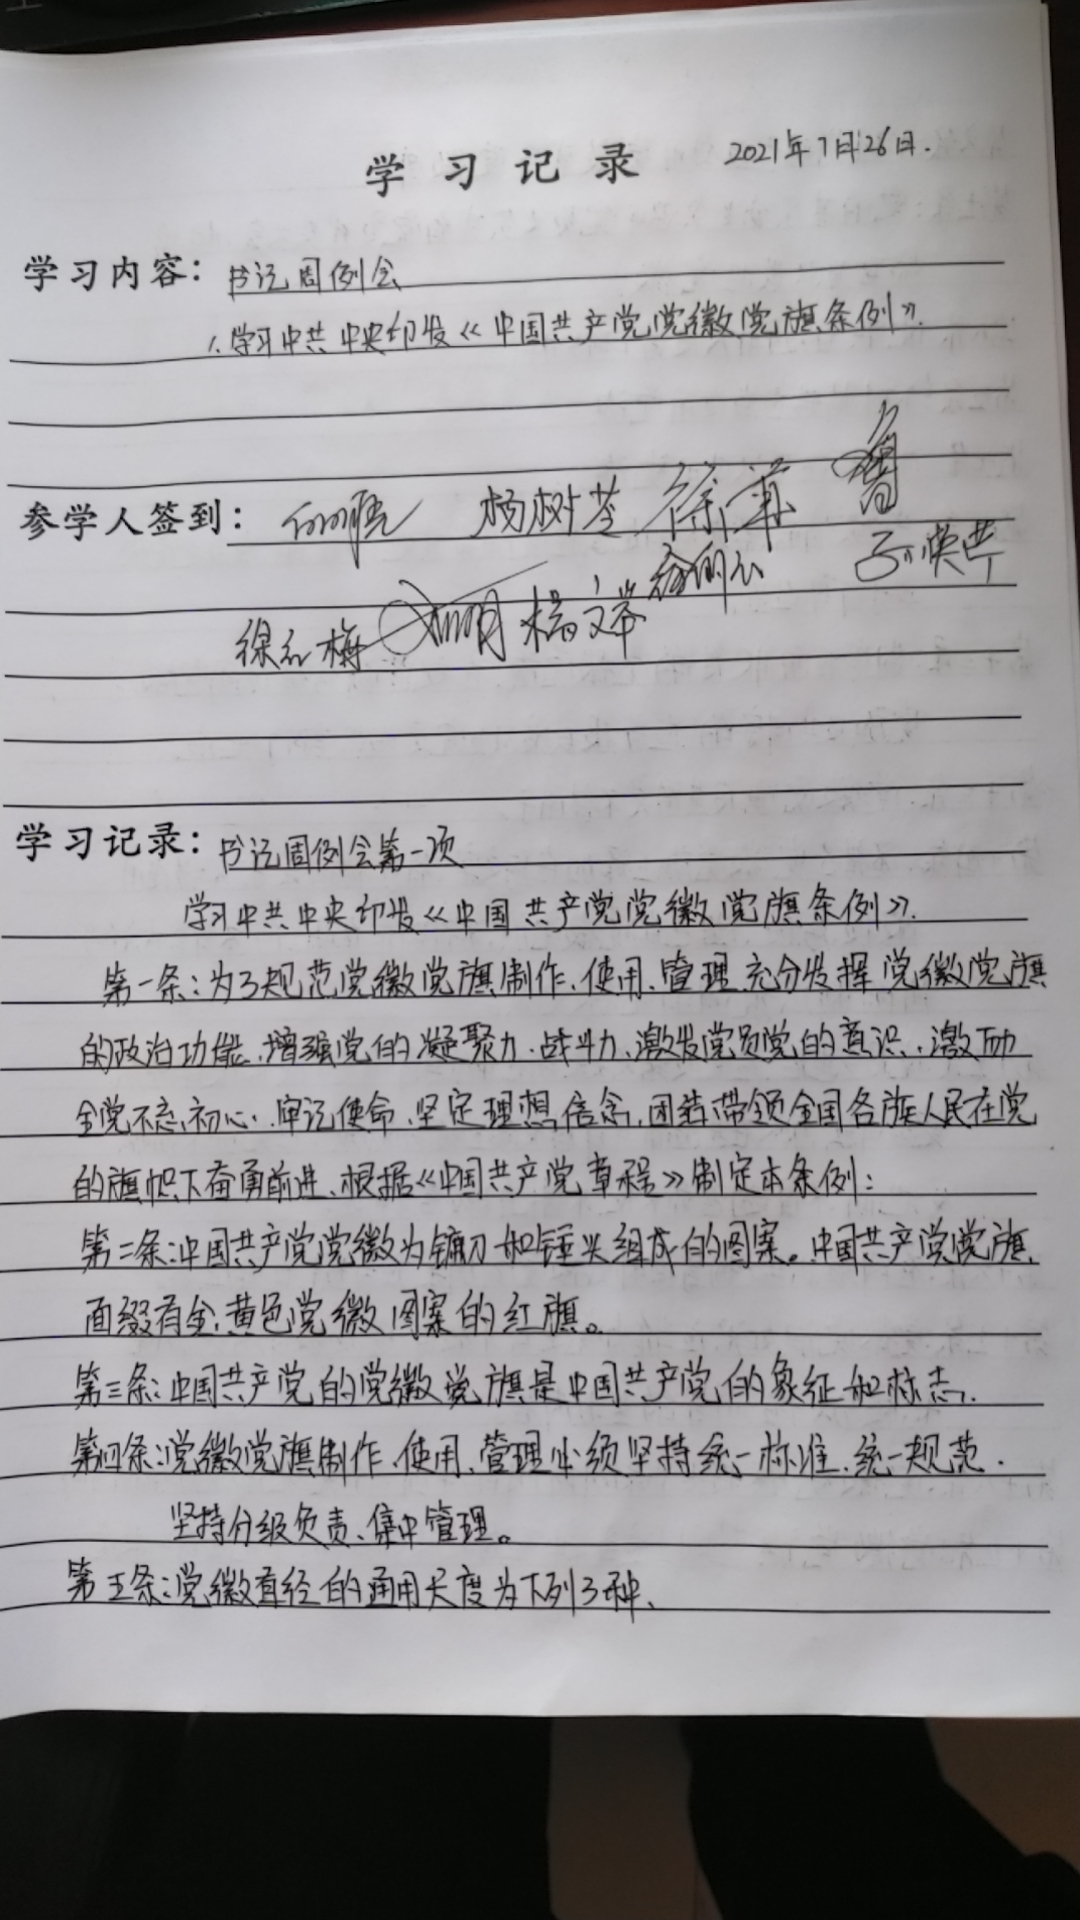 学习记录 2021年7月26日.
学习内容：书记周例会
1.学习中共中央印发《中国共产党党徽党旗条例》.
参学人签到： 杨树苓
徐红梅 杨文举
学习记录：书记周例会第一项
学习中共中央印发《中国共产党党徽党旗条例》.
第一条：为了规范党徽党旗制作、使用、管理、充分发挥党徽党旗
的政治功能、增强党的凝聚力、战斗力、激发党员党的意识、激励
全党不忘初心、牢记使命、坚定理想信念、团结带领全国各族人民在党
的旗帜下奋勇前进、根据《中国共产党章程》制定本条例：
第二条：中国共产党党徽为镰刀和锤头组成的图案。中国共产党党旗、
面缀有金黄色党徽图案的红旗。
第三条：中国共产党的党徽党旗是中国共产党的象征和标志、
第四条：党徽党旗制作、使用、管理必须坚持统一标准、统一规范.
坚持分级负责、集中管理。
第五条：党徽直径的通用尺度为下列3种、